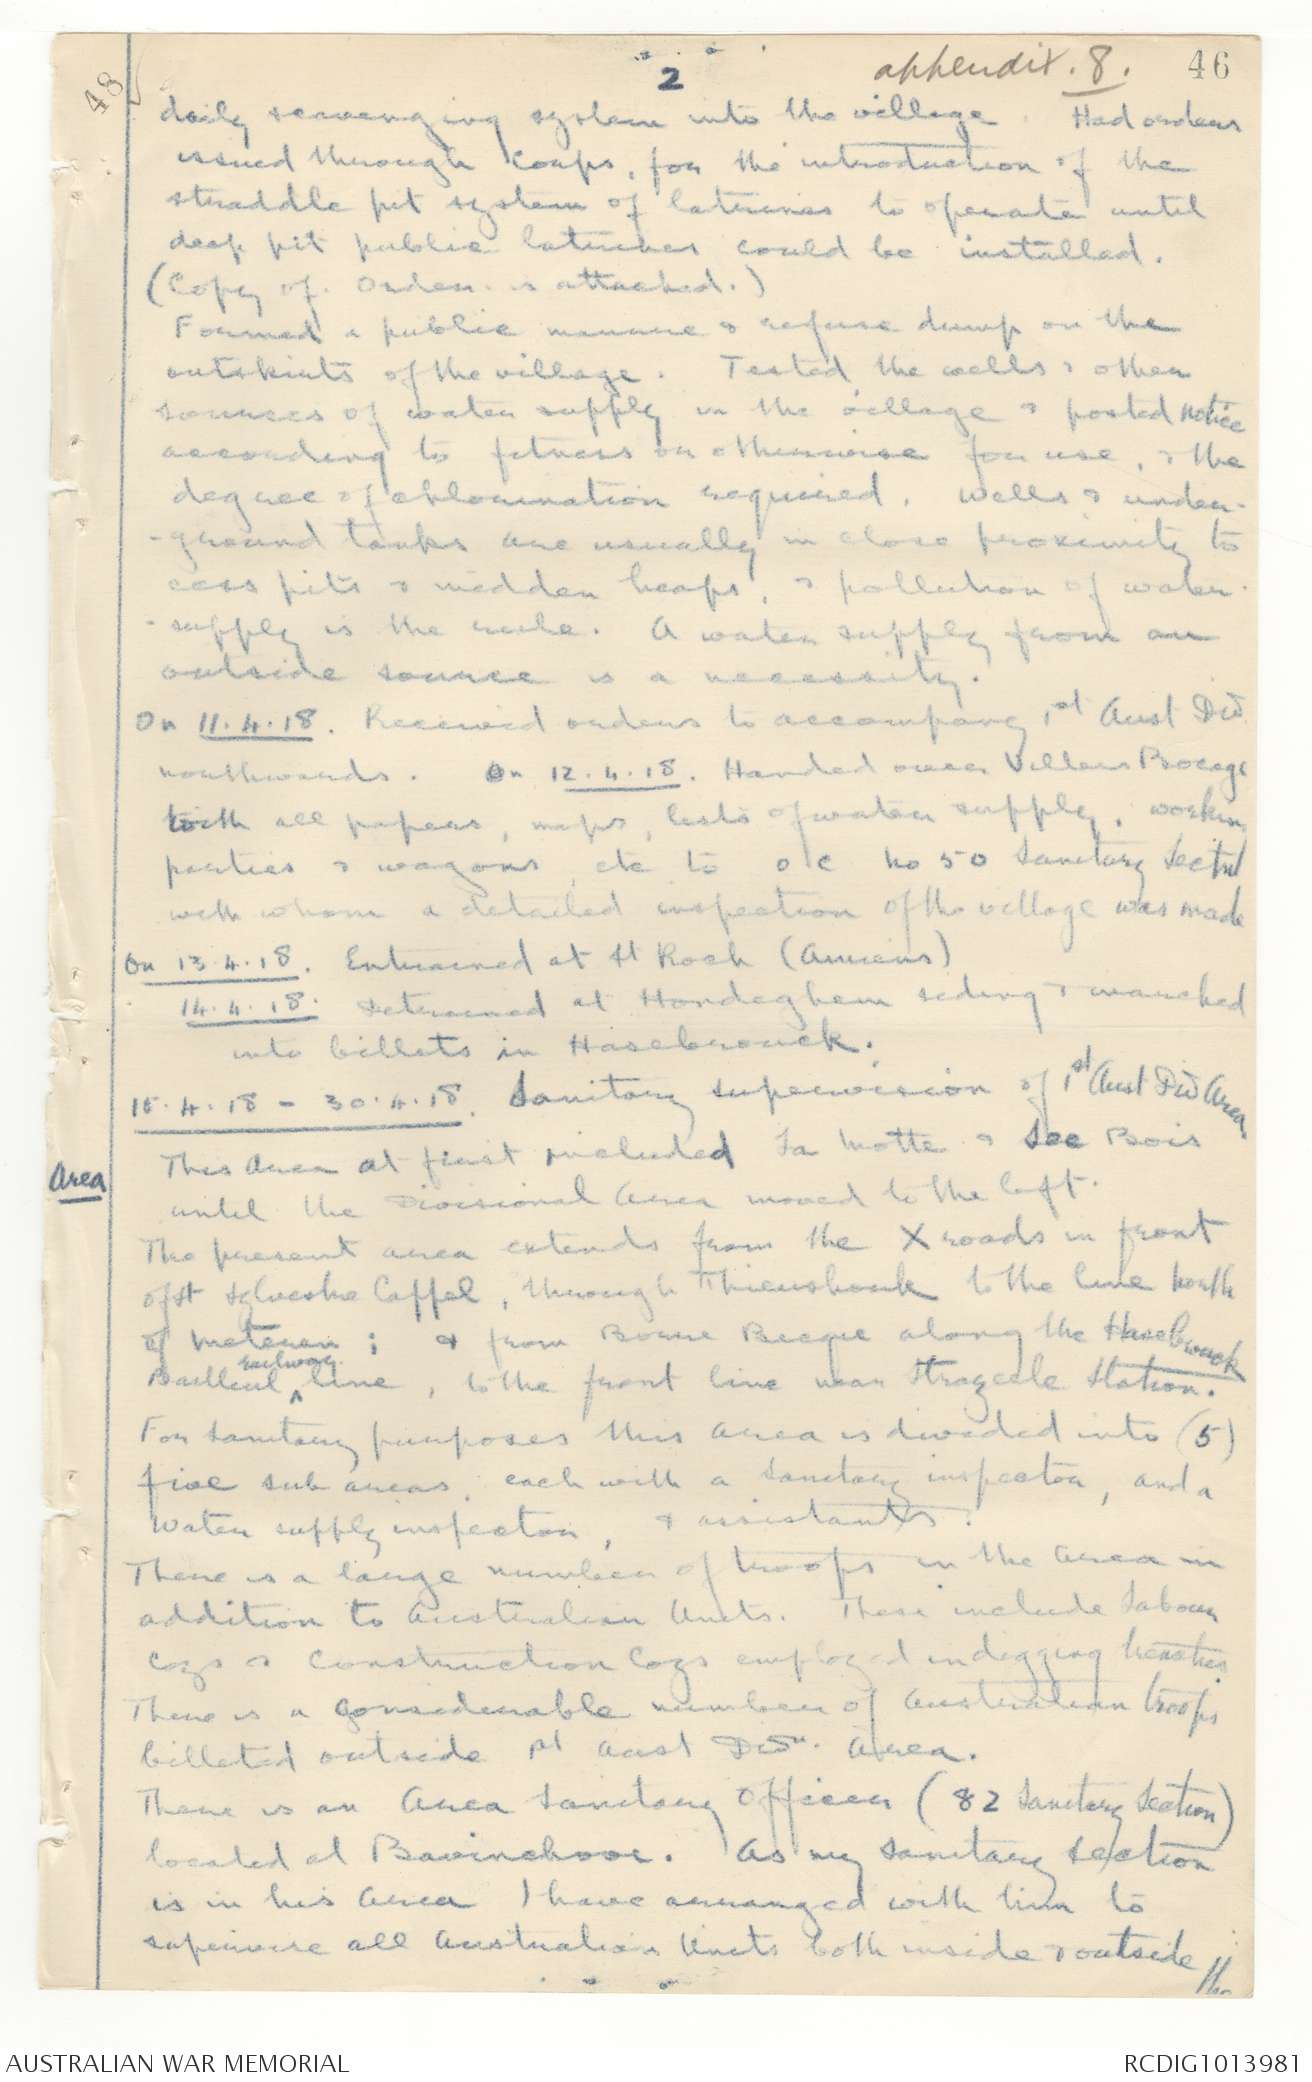 48
2
appendix. 8. 46
daily scavenging system into the village. Had orders
issued through Corps, for the introduction of the
straddle pit system of latrines to operate until
deep pit public latrines could be installed.
(Copy of. Order. is attached.)
Formed a public manure & refuse dump on the
outskirts of the village. Tested the wells & other
sources of water supply in the village & posted notice
according to fitness or otherwise for use, & the
degree of chlorination required. Wells & under-
-ground tanks are usually in close proximity to
cess pits & midden heaps, & pollution of water-
-supply is the rule. A water supply from an
outside source is a necessity.
On 11.4.18. Received orders to accompany 1st Aust Div
northwards. On 12.4.18. Handed over Villers Bocage
with all papers, maps, lists of water supply, working
parties & wagons, etc to O C No 50 Sanitary Sectn
with whom a detailed inspection of the village was made
On 13.4.18. Entrained at St Roch (Amiens)
14.4.18. Detrained at Hondeghem siding & marched
into billets in Hasebrouck.
15.4.18 - 30.4.18. Sanitary supervision of 1st Aust Div Area.
Area
This Area at first included La Motte & Sec Bois
until the Divisional Area moved to the left.
The present area extends from the X roads in front
of St Sylvestre Cappel, through Thieushouk to the line north
of Meteren; & from Borre Becque along the Hasebrouck
Bailleul railway line, to the front line near Strazeele Station.
For sanitary purposes this area is divided into (5)
five sub areas, each with a sanitary inspector, and a
water supply inspector, & assistants.
There is a large number of troops in the area in
addition to Australian Units. These include Labour
Coys & Construction Coys employed in digging trenches
There is a considerable number of Australian troops
billeted outside 1st Aust Divn. Area.
There is an Area Sanitary Officer (82 Sanitary Section)
located at Bavinchove. As my sanitary section
is in his area I have arranged with him to
supervise all Australian Units both inside & outside
the
AUSTRALIAN WAR MEMORIAL
RCDIG1013981